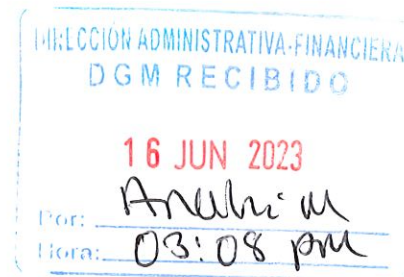 DIRECCIÓN ADMINISTRATIVA-FINANCIERA
DGM RECIBIDO
16 JUN 2023
Por:
Hora: 03:08 pm